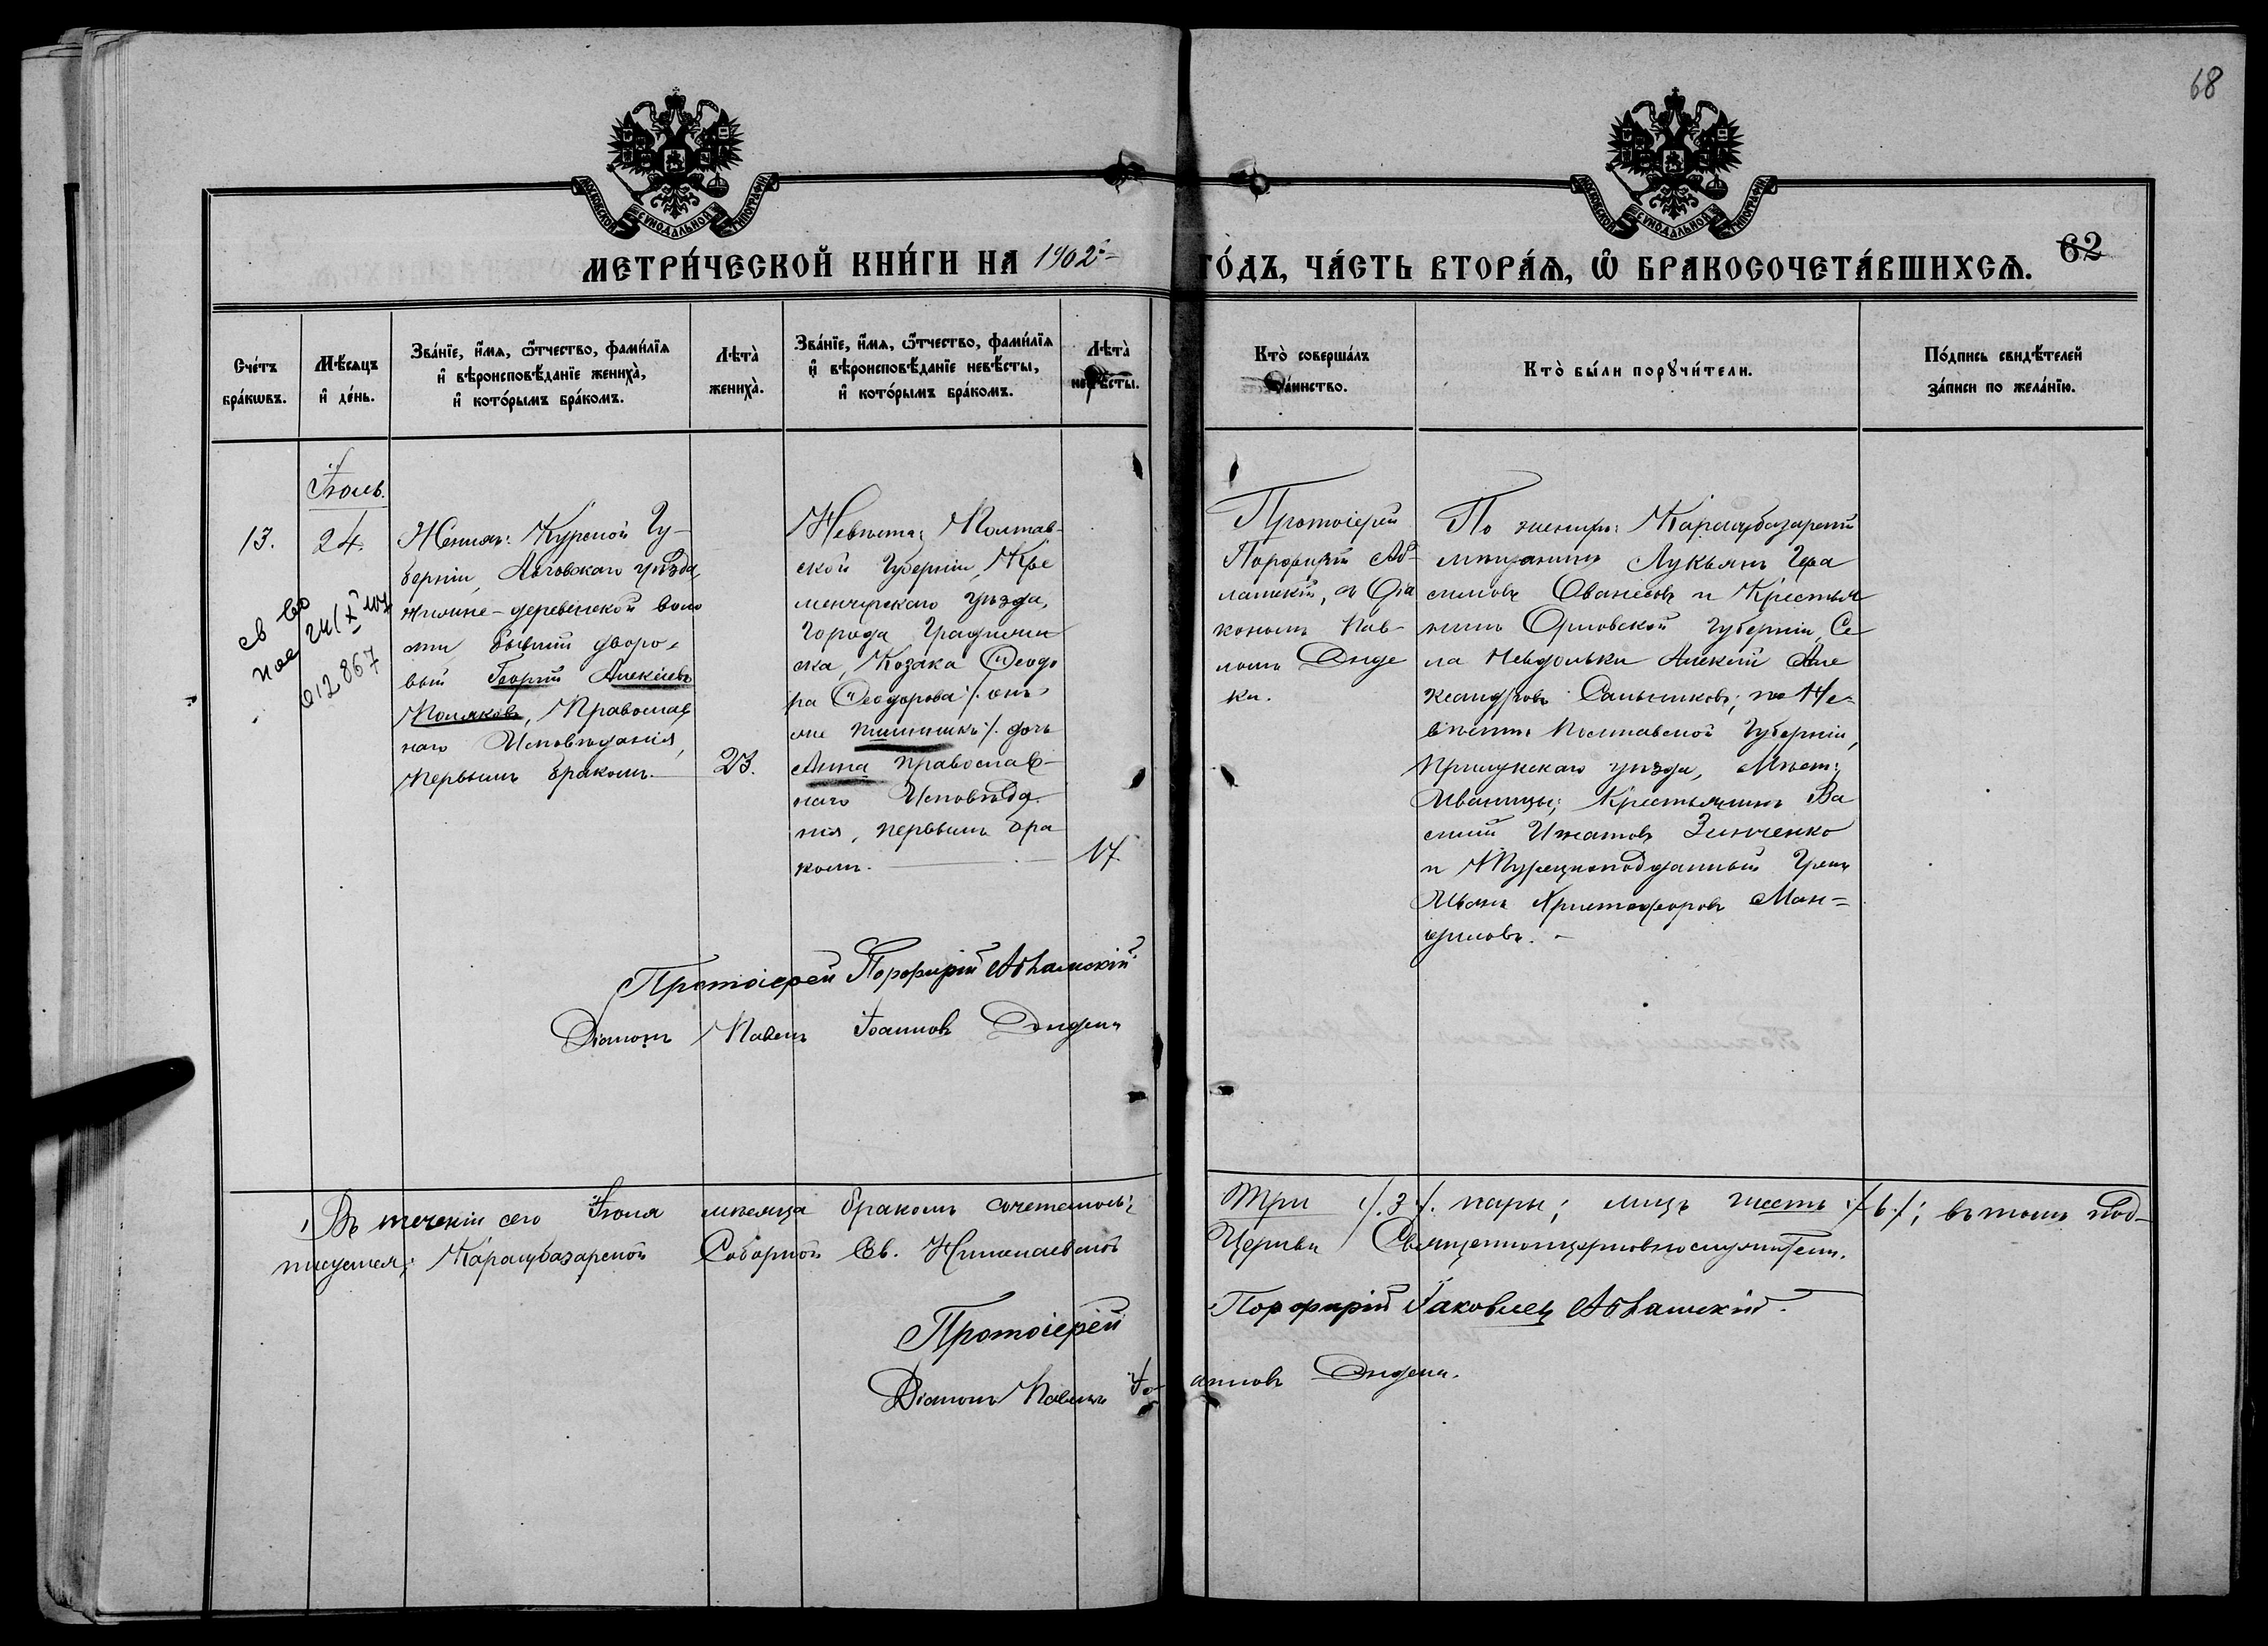 68
МОСКОВСКОЙ СѴНОДАЛЬНОЙ ТИПОГРАФІИ
МОСКОВСКОЙ СѴНОДАЛЬНОЙ ТИПОГРАФІИ
МЕТРИ́ЧЕСКОЙ КНИ́ГИ НА 1902 ГО́ДЪ, ЧА́СТЬ ВТОРА́Ѧ, Ѡ БРАКОСОЧЕТА́ВШИХСѦ.
62
Сче́тъ бра́кѡвъ.
Мѣ́сяцъ и҆ де́нь.
Зва́нїе, и҆́мѧ, ѻ҆́тчество, фами́лїѧ и҆ вѣроисповѣ́данїе жениха̀, и҆ кото́рымъ бра́комъ.
Лѣта̀ жениха̀.
Зва́нїе, и҆́мѧ, ѻ҆́тчество, фами́лїѧ и҆ вѣроисповѣ́данїе невѣ́сты, и҆ кото́рымъ бра́комъ.
Лѣта̀ невѣ́сты.
Кто̀ соверша́лъ та́инство.
Кто̀ бы́ли порꙋчи́тели.
По́дпись свидѣ́телей за́писи по жела́нїю.
Іюль.
13.
24.
св во
012867
Женихъ: Курской Гу-
берніи, Льговскаго уѣзда,
деревенской воло
сти бывшій дворо-
вый Георгій Алексіевъ
Поляковъ, Православ
наго Исповѣданія,
первымъ бракомъ.
23.
Невѣста: Полтав-
ской Губерніи, Кре
менчугскаго уѣзда,
города Градижи
ска, Козака Ѳеодо
ра Ѳеодорова /. онъ-
же /. дочь
Анна православ-
наго Исповѣда-
нія, первымъ бра
комъ.
17.
Протоіерей
Порфирій Аб-
ламскій, съ Діа
кономъ Пав-
ломъ Диде
ки.
По женихѣ: Карасубазарскій
мѣщанинъ Лукьянъ Гера
симовъ Ованесовъ и Крестья
нинъ Орловской губерніи, Се
ла Алексій Але
ксандровъ Сальниковъ; по Не-
вѣстѣ Полтавской Губерніи,
Прилукскаго уѣзда, Мѣст:
Иваницы, Крестьянинъ Ва
силій Игнатовъ Зинченко
и Турецкоподданный Грекъ
Иванъ Христофоровъ Ман-
Протоіерей Порфирій Абламскій
Діаконъ Павелъ Іоанновъ Дидеки
Въ теченіи сего Іюля мѣсяца бракомъ сочеталось: Три /.3./ пары; лицъ шесть /.6./; въ томъ под-
писуемся: Карасубазарской Соборной Св. Николаевской Церкви Священноцерковнослужители.
Протоіерей Порфирій Іаковлев Абламскій.
Діаконъ Павелъ Іоанновъ Дидеки.